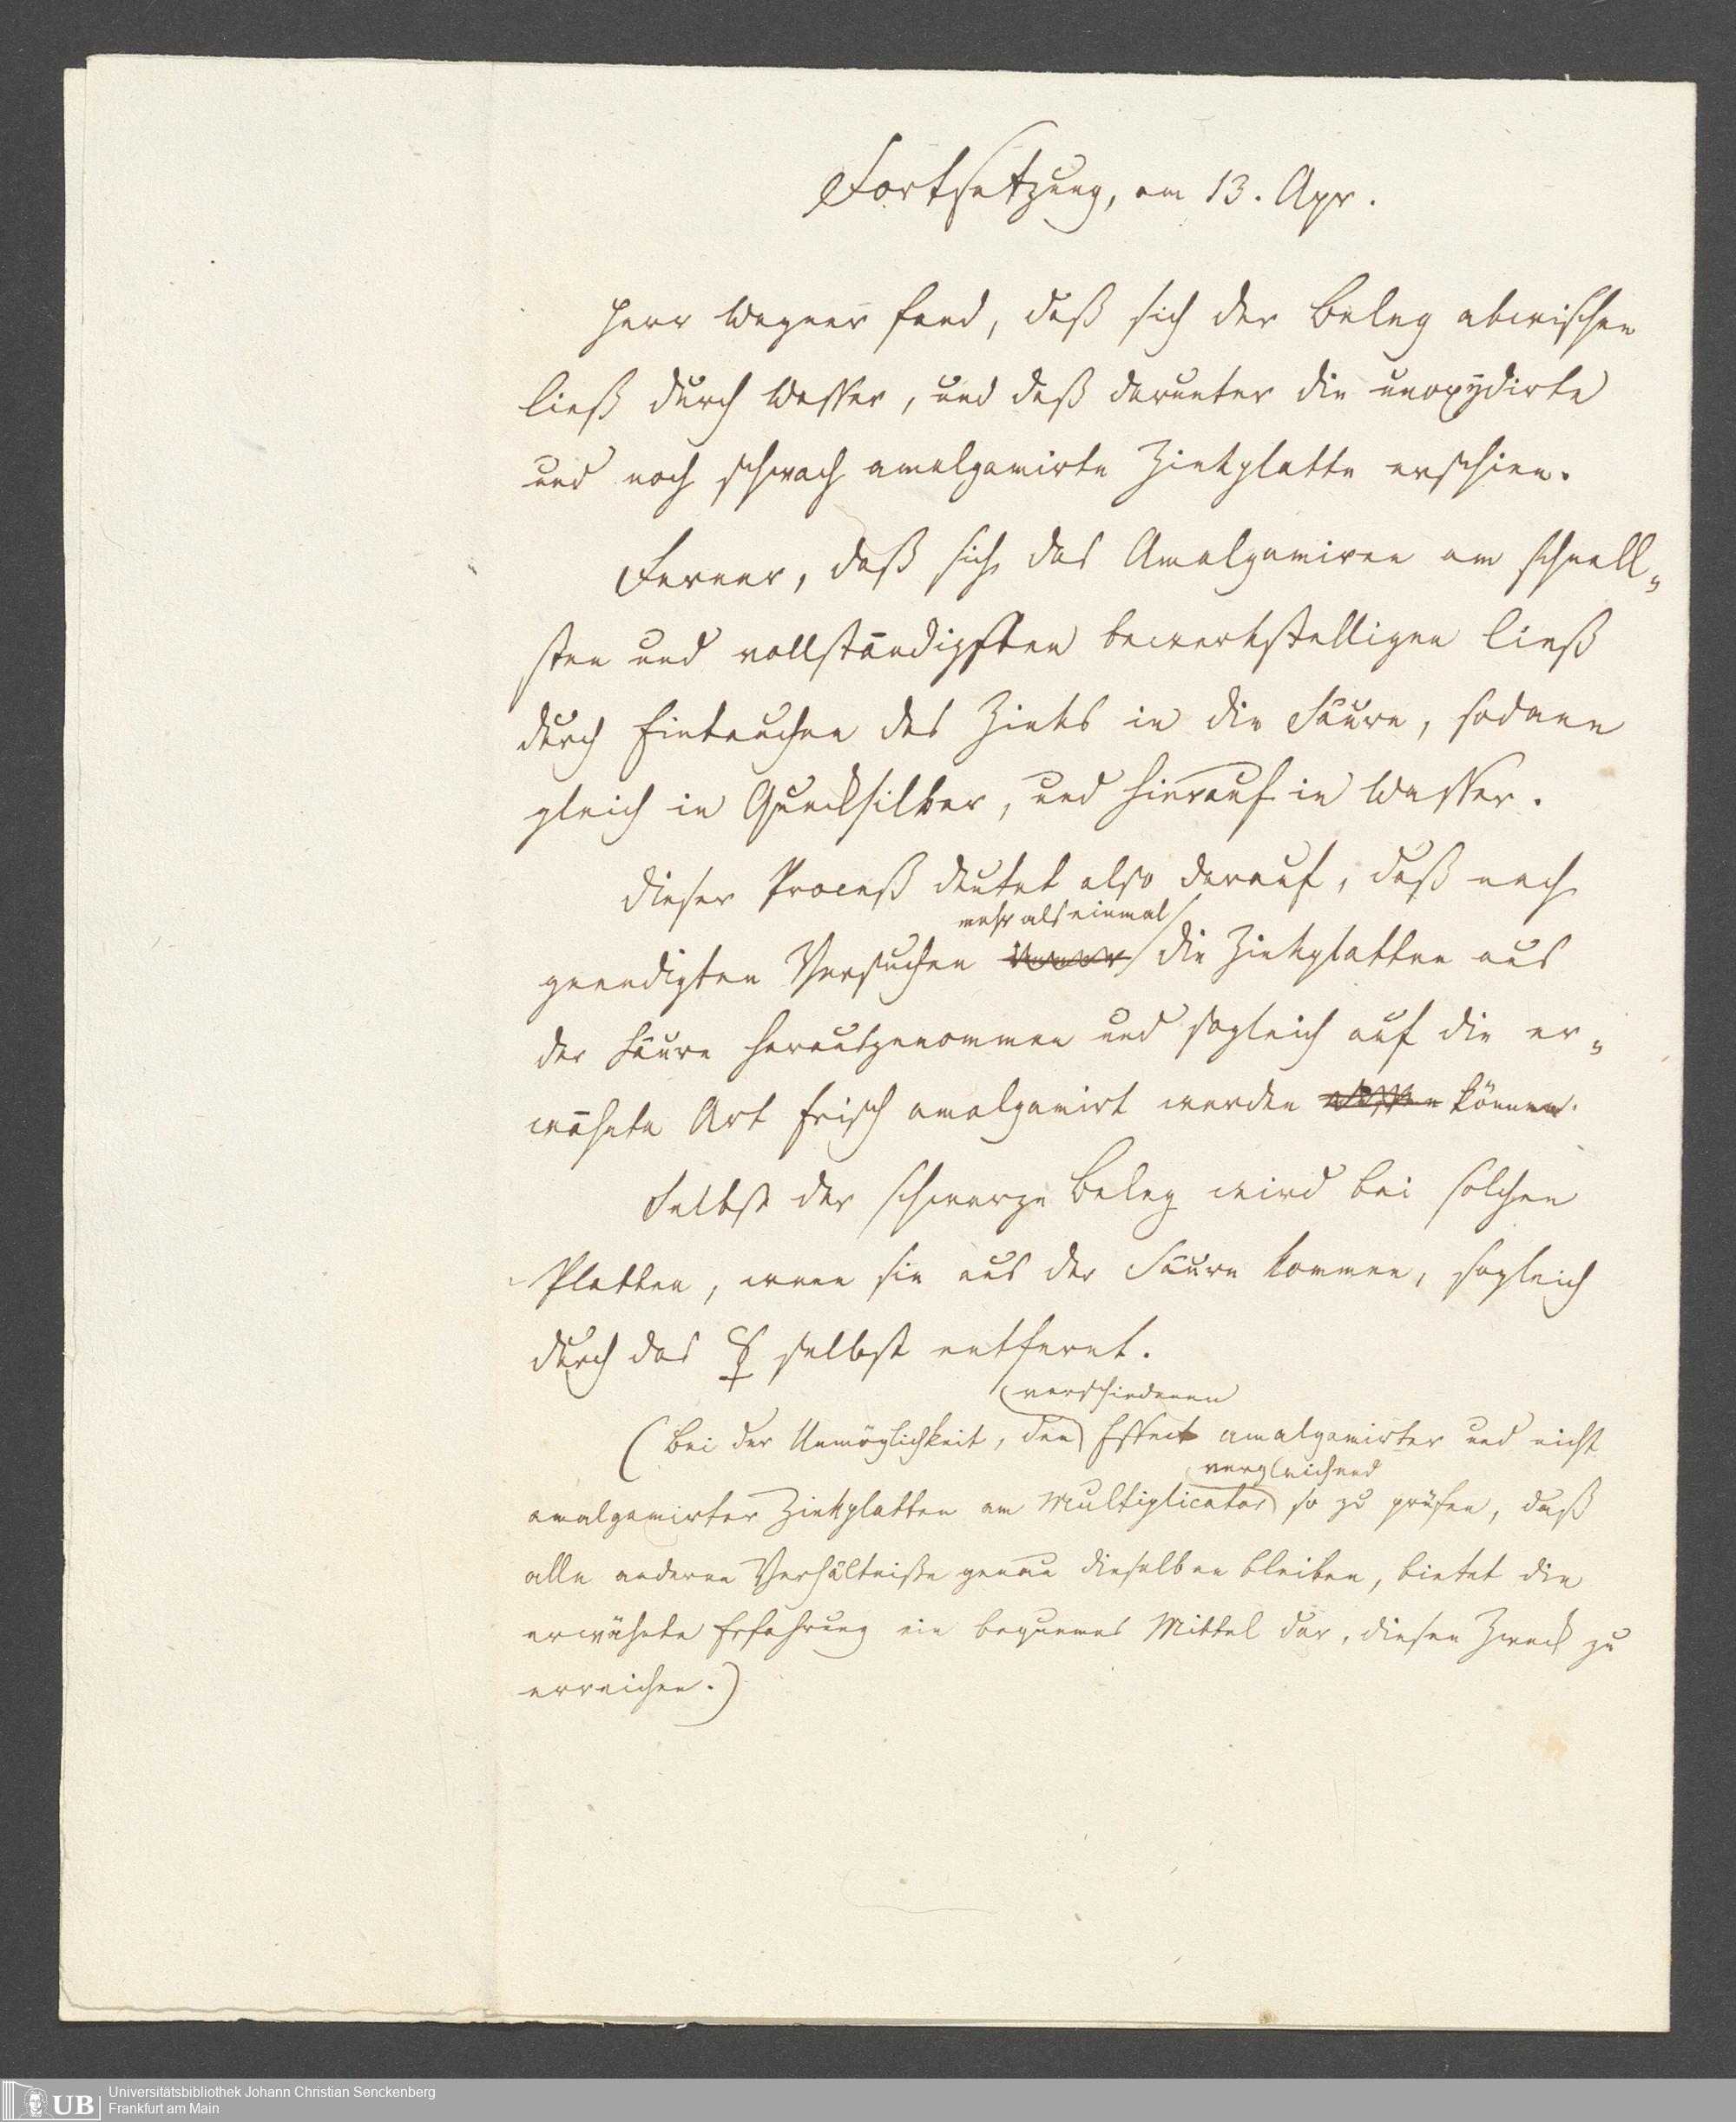 Fortsetzung, am 13. Apr.
Herr Wagner fand, daß sich der Beleg abwischen
ließ durch Wasser, und daß darunter die unoxydirte
und noch schwach amalgamirte Zinkplatte erschien.
Ferner, daß sich das Amalgamiren am schnell-
sten und vollständigsten bewerkstelligen ließ
durch Eintauchen des Zinks in die Säure, sodann
gleich in Quecksilber, und hierauf in Wasser.
Dieser Proceß deutet also darauf, daß nach
mehr als einmal
geendigten Versuchen die Zinkplatten aus
der Säure herausgenommen und sogleich auf die er-
wähnte Art frisch amalgamirt werden können.
Selbst der schwarze Beleg wird bei solchen
Platten, wenn sie aus der Säure kommen, sogleich
durch das ☿ selbst entfernt.
verschiedenen
(Bei der Unmöglichkeit, den Effect amalgamirter und nicht
vergleichend
amalgamirter Zinkplatten am Multiplicator so zu prüfen, daß
alle anderen Verhältniße genau dieselben bleiben, bietet die
erwähnte Erfahrung ein bequemes Mittel dar, diesen Zweck zu
erreichen.)
UB Universitätsbibliothek Johann Christian Senckenberg
Frankfurt am Main